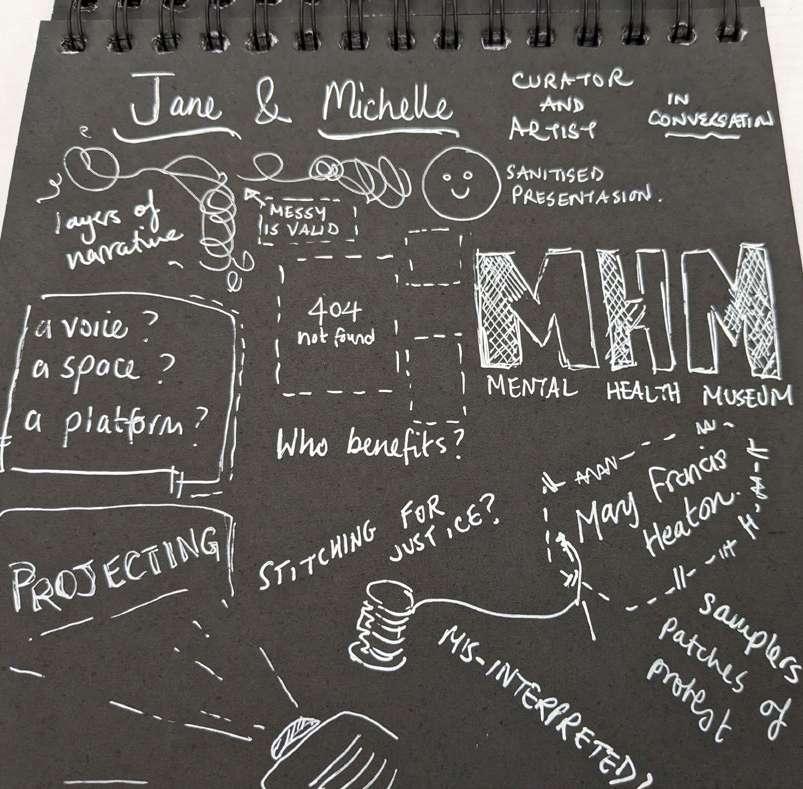 Jane & Michelle
CURATOR
AND
ARTIST
IN
CONVERSATION
layers of
narrative
MESSY
IS VALID
SANITISED
PRESENTASION.
a voice?
a space?
a platform?
404
not found
Who benefits?
MHM
MENTAL HEALTH MUSEUM
PROJECTING
STITCHING FOR
JUSTICE?
Mary Francis
Heaton.
MIS-INTERPRETED?
Samplers
patches of
protest